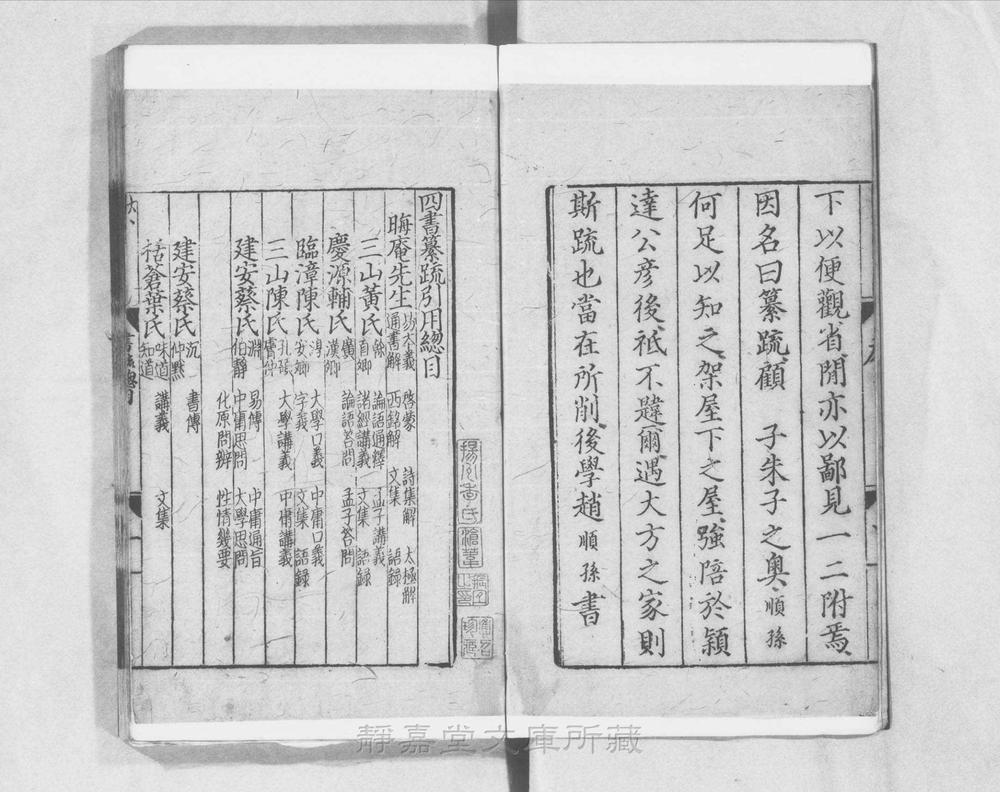 下以便觀省閒亦以鄙見一二附焉
因名曰纂䟽顧　子朱子之奥順孫
何足以知之架屋下之屋強陪於穎
達公彦後祗不韙爾遇大方之家則
斯疏也當在所削後學趙順孫書
四書纂䟽引用總目
晦庵先生　易本義　啓蒙　詩集解　太極解
通書解　西銘解　文集　語録
三山黃氏　榦　直卿　論語通釋　孟子講義
諸經講義　文集　語録
慶源輔氏　廣　漢卿　論語荅問　孟子荅問
臨漳陳氏　淳　安卿　大學口義　中庸口義
字義　文集　語録
三山陳氏　孔碩　膚仲　大學講義　中庸講義
建安蔡氏　淵　伯静　易傳　中庸通旨
中庸思問　大學思問
化原問辨　性情幾要
建安蔡氏　沉　仲黙　書傳
栝蒼葉氏　味道　知道　講義　文集
靜嘉堂文庫所藏